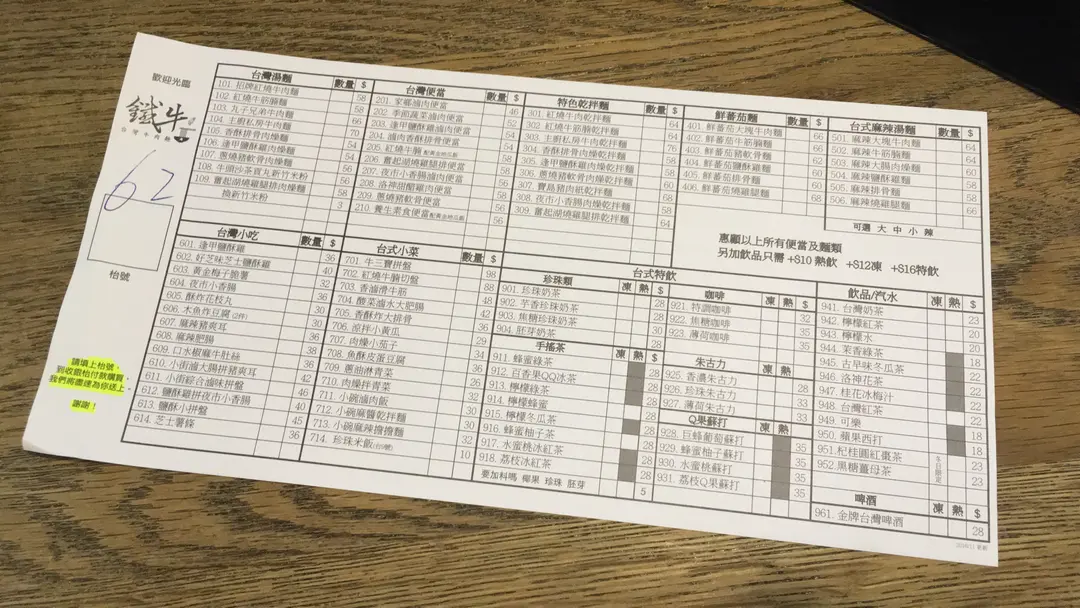 歡迎光臨
鐵牛
台灣牛肉麵
62
枱號
請填上枱號,
到收銀枱付款購買,
我們將盡速為你送上,
謝謝!
台灣湯麵 數量 $
101. 招牌紅燒牛肉麵 58
102. 紅燒牛筋腩麵 58
103. 丸子兄弟牛肉麵 66
104. 主廚私房牛肉麵 70
105. 香酥排骨肉燥麵 54
106. 逢甲鹽酥雞肉燥麵 54
107. 蔥燒豬軟骨肉燥麵 56
108. 牛頭沙茶貢丸新竹米粉 56
109. 奮起湖燒雞腿排肉燥麵 58
換新竹米粉 3
台灣便當 數量 $
201. 家鄉滷肉便當 46
202. 季節蔬菜滷肉便當 52
203. 逢甲鹽酥雞滷肉便當 54
204. 滷肉香酥排骨便當 54
205. 紅燒牛腩 配黃金地瓜飯 58
206. 奮起湖燒雞腿排便當 58
207. 夜市小香腸滷肉便當 54
208. 洛神甜醋雞便當 56
209. 蔥燒豬軟骨便當 56
210. 養生素食便當 配黃金地瓜飯 56
特色乾拌麵 數量 $
301. 紅燒牛肉乾拌麵 64
302. 紅燒牛筋腩乾拌麵 64
303. 主廚私房牛肉乾拌麵 76
304. 香酥排骨肉燥乾拌麵 58
305. 逢甲鹽酥雞肉燥乾拌麵 58
306. 蔥燒豬軟骨肉燥乾拌麵 60
307. 寶島豬肉紙乾拌麵 58
308. 夜市小香腸肉燥乾拌麵 58
309. 奮起湖燒雞腿排乾拌麵 64
鮮蕃茄麵 數量 $
401. 鮮蕃茄大塊牛肉麵 66
402. 鮮蕃茄牛筋腩麵 66
403. 鮮蕃茄豬軟骨麵 62
404. 鮮蕃茄鹽酥雞麵 60
405. 鮮蕃茄排骨麵 60
406. 鮮蕃茄燒雞腿麵 68
台式麻辣湯麵 數量 $
501. 麻辣大塊牛肉麵 64
502. 麻辣牛筋腩麵 64
503. 麻辣大腸肉燥麵 60
504. 麻辣鹽酥雞麵 58
505. 麻辣排骨麵 58
506. 麻辣燒雞腿麵 66
可選 大 中 小 辣
惠顧以上所有便當及麵類
另加飲品只需 +$10 熱飲 +$12凍 +$16特飲
台灣小吃 數量 $
601. 逢甲鹽酥雞 36
602. 好芝味芝士鹽酥雞 40
603. 黃金梅子脆薯 32
604. 夜市小香腸 32
605. 酥炸花枝丸 30
606. 木魚炸豆腐 (2件) 30
607. 麻辣豬爽耳 36
608. 麻辣肥腸 40
609. 口水椒麻牛肚絲 38
610. 小街滷大腸拼豬爽耳 46
611. 小街綜合滷味拼盤 42
612. 鹽酥雞拼夜市小香腸 45
613. 鹽酥小拼盤 40
614. 芝士薯條 36
台式小菜 數量 $
701. 牛三寶拼盤 98
702. 紅燒牛腩切盤 88
703. 香滷滑牛筋 88
704. 酸菜滷水大肥腸 48
705. 香酥炸大排骨 42
706. 涼拌小黃瓜 36
707. 肉燥小茄子 29
708. 魚酥皮蛋豆腐 34
709. 蔥油淋青菜 29
710. 肉燥拌青菜 32
711. 小碗滷肉飯 26
712. 小碗麻醬乾拌麵 30
713. 小碗麻辣擔擔麵 32
714. 珍珠米飯 10
台式特飲
珍珠類 凍 熱 $
901. 珍珠奶茶 28
902. 芋香珍珠奶茶 28
903. 焦糖珍珠奶茶 28
904. 胚芽奶茶 28
手搖茶 凍 熱 $
911. 蜂蜜綠茶 28
912. 百香果QQ冰茶 28
913. 檸檬綠茶 28
914. 檸檬蜂蜜 28
915. 檸檬冬瓜茶 28
916. 蜂蜜柚子茶 28
917. 水蜜桃冰紅茶 28
918. 荔枝冰紅茶 28
要加料嗎 椰果 珍珠 胚芽 5
咖啡 凍 熱 $
921. 特調咖啡 32
922. 焦糖咖啡 35
923. 薄荷咖啡 35
朱古力 凍 熱 $
925. 香濃朱古力 28
926. 珍珠朱古力 33
927. 薄荷朱古力 33
Q果蘇打 凍 熱 $
928. 巨蜂葡萄蘇打 35
929. 蜂蜜柚子蘇打 35
930. 水蜜桃蘇打 35
931. 荔枝Q果蘇打 35
飲品/汽水 凍 熱 $
941. 台灣奶茶 23
942. 檸檬紅茶 20
943. 檸檬水 20
944. 茉香綠茶 18
945. 古早味冬瓜茶 22
946. 洛神花茶 22
947. 桂花冰梅汁 22
948. 台灣紅茶 22
949. 可樂 18
950. 蘋果西打 18
951. 杞桂圓紅棗茶 23
952. 黑糖薑母茶 23
冬日限定
啤酒 凍 熱 $
961. 金牌台灣啤酒 28